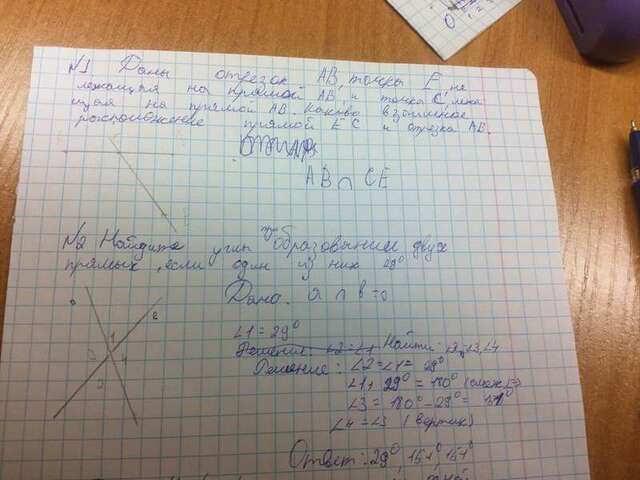 N1 Даны отрезок AB, точка E, не
лежащая на прямой AB, и точка C, лежа
щая на прямой AB. Каково взаимное
расположение прямой EC и отрезка AB.
AB ∩ CE
N2 Найдите углы при образовании двух
прямых, если один из них 29°
Дано: a ∩ b = o
∠1 = 29°
Решение: ∠2=∠1 Найти: ∠2,∠3,∠4
Решение: ∠2=∠1= 29°
∠1+ 29° = 180° (смеж)
∠3 = 180° - 29° = 151°
∠4 = ∠3 (вертик)
Ответ: 29°, 151°, 151°
a
в
1
4
2